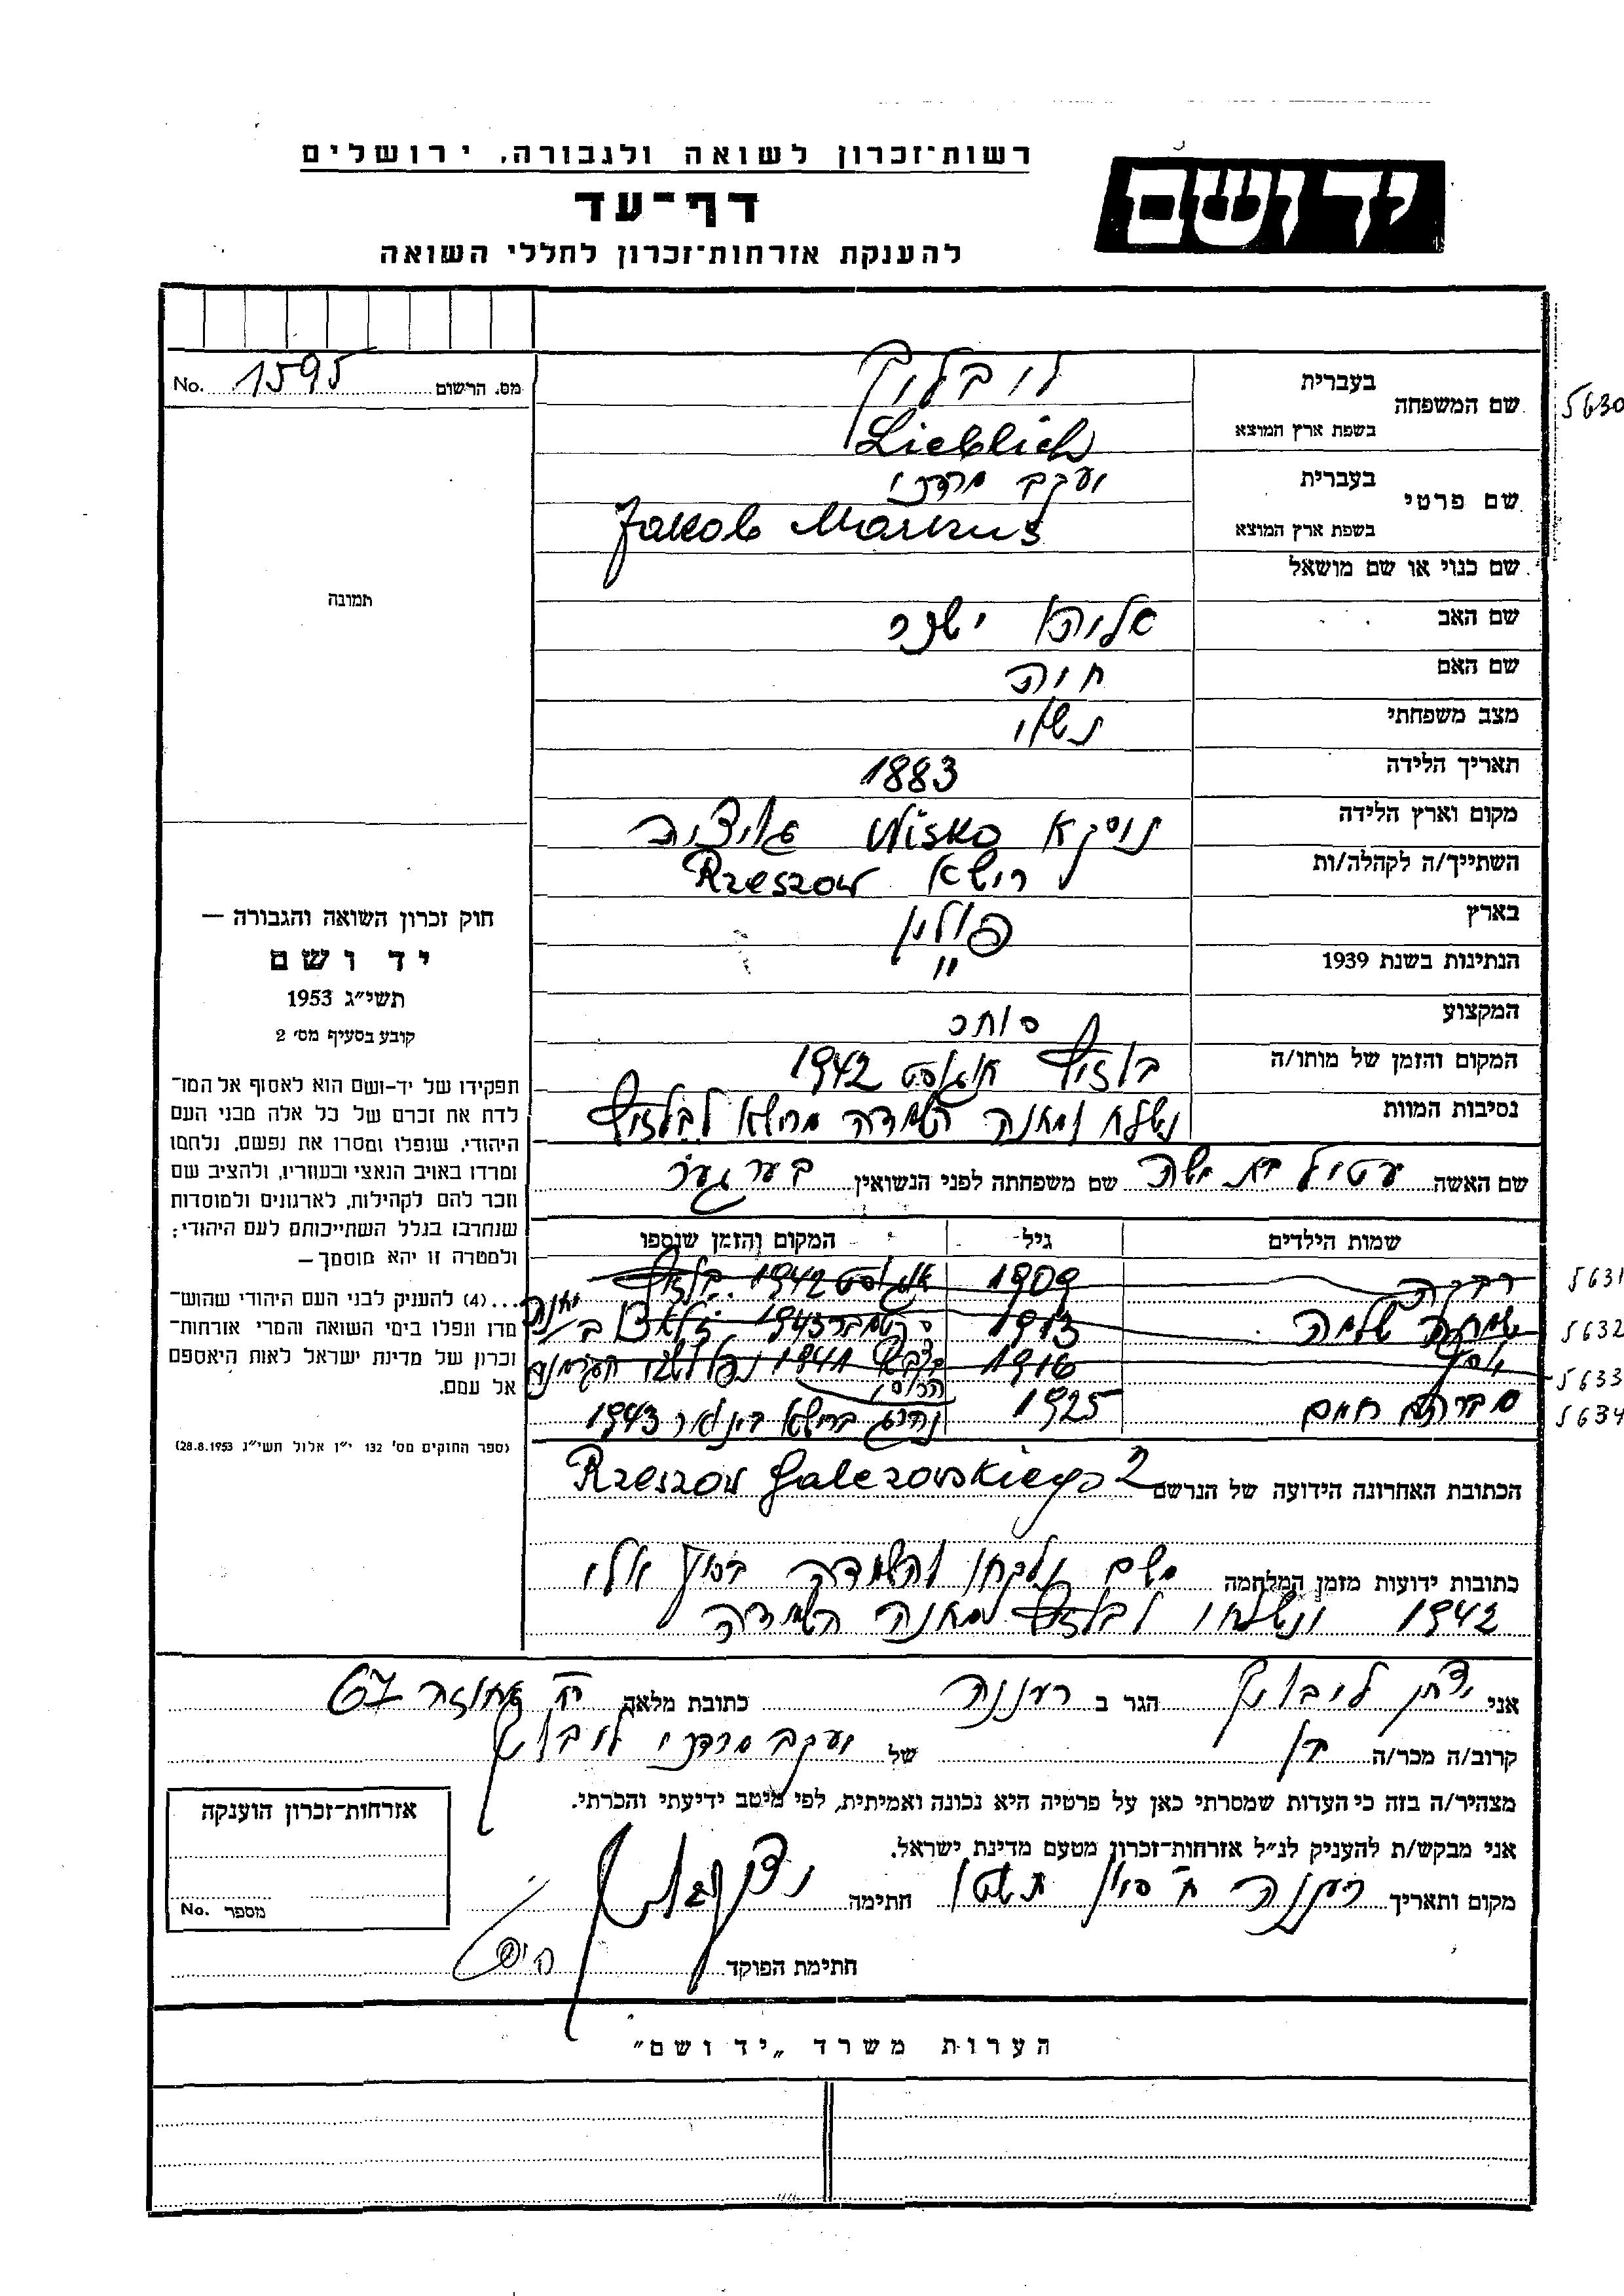 רשות־זכרון לשואה ולגבורה, ירושלים
ידושם
דף־עד
להענקת אזרחות־זכרון לחללי השואה
מס. הרשום 1595 No.
שם המשפחה בעברית
בשפת ארץ המוצא Lieblich
5630
שם פרטי בעברית יעקב מרדכי
בשפת ארץ המוצא Jakob Markus
שם כנוי או שם מושאל
שם האב אליהו ישכר
שם האם חיה
מצב משפחתי נשאוי
תאריך הלידה 1883
מקום וארץ הלידה ניסקא Nisko גליציה
השתייך/ה לקהלה/ות רישא Rzeszow
בארץ פולין
הנתינות בשנת 1939 "
המקצוע סוחר
המקום והזמן של מותו/ה בלזיץ אוגוסט 1942
נסיבות המוות נשלח למחנה השמדה מרישא לבלזיץ
שם האשה עטיל בת משה שם משפחתה לפני הנשואין בערגער
שמות הילדים גיל המקום והזמן שנספו
רבקה 1909 אוגוסט 1942 בלזיץ 5631
שמחה שלמה 1913 1943 5632
יוסף 1916 1941 5633
אברהם חיים 1925 נהרג ברישא בינואר 1943 5634
הכתובת האחרונה הידועה של הנרשם Rzeszow Galezowskiego 2
כתובות ידועות מזמן המלחמה משם נלקחו להשמדה בסוף יולי
1942 ונשלחו לבלזיץ למחנה השמדה
אני נתן ליבליך הגר ב רעננה כתובת מלאה רח אחוזה 67
קרוב/ה מכר/ה בן של יעקב מרדכי ליבליך
מצהיר/ה בזה כי העדות שמסרתי כאן על פרטיה היא נכונה ואמיתית, לפי מיטב ידיעתי והכרתי.
אני מבקש/ת להעניק לנ״ל אזרחות־זכרון מטעם מדינת ישראל.
מקום ותאריך רעננה ח סיון חתימה
חתימת הפוקד
תמונה
חוק זכרון השואה והגבורה —
יד ושם
תשי״ג 1953
קובע בסעיף מס׳ 2
תפקידו של יד-ושם הוא לאסוף אל המו־
לדת את זכרם של כל אלה מבני העם
היהודי, שנפלו ומסרו את נפשם, נלחמו
ומרדו באויב הנאצי ובעוזריו, ולהציב שם
וזכר להם לקהילות, לארגונים ולמוסדות
שנחרבו בגלל השתייכותם לעם היהודי;
ולמטרה זו יהא מוסמך—
...(4) להעניק לבני העם היהודי שהוש־
מדו ונפלו בימי השואה והמרי אזרחות־
זכרון של מדינת ישראל לאות היאספם
אל עמם.
(ספר החוקים מס׳ 132 י״ז אלול תשי״ג 28.8.1953)
אזרחות־זכרון הוענקה
מספר No.
הערות משרד „יד ושם״